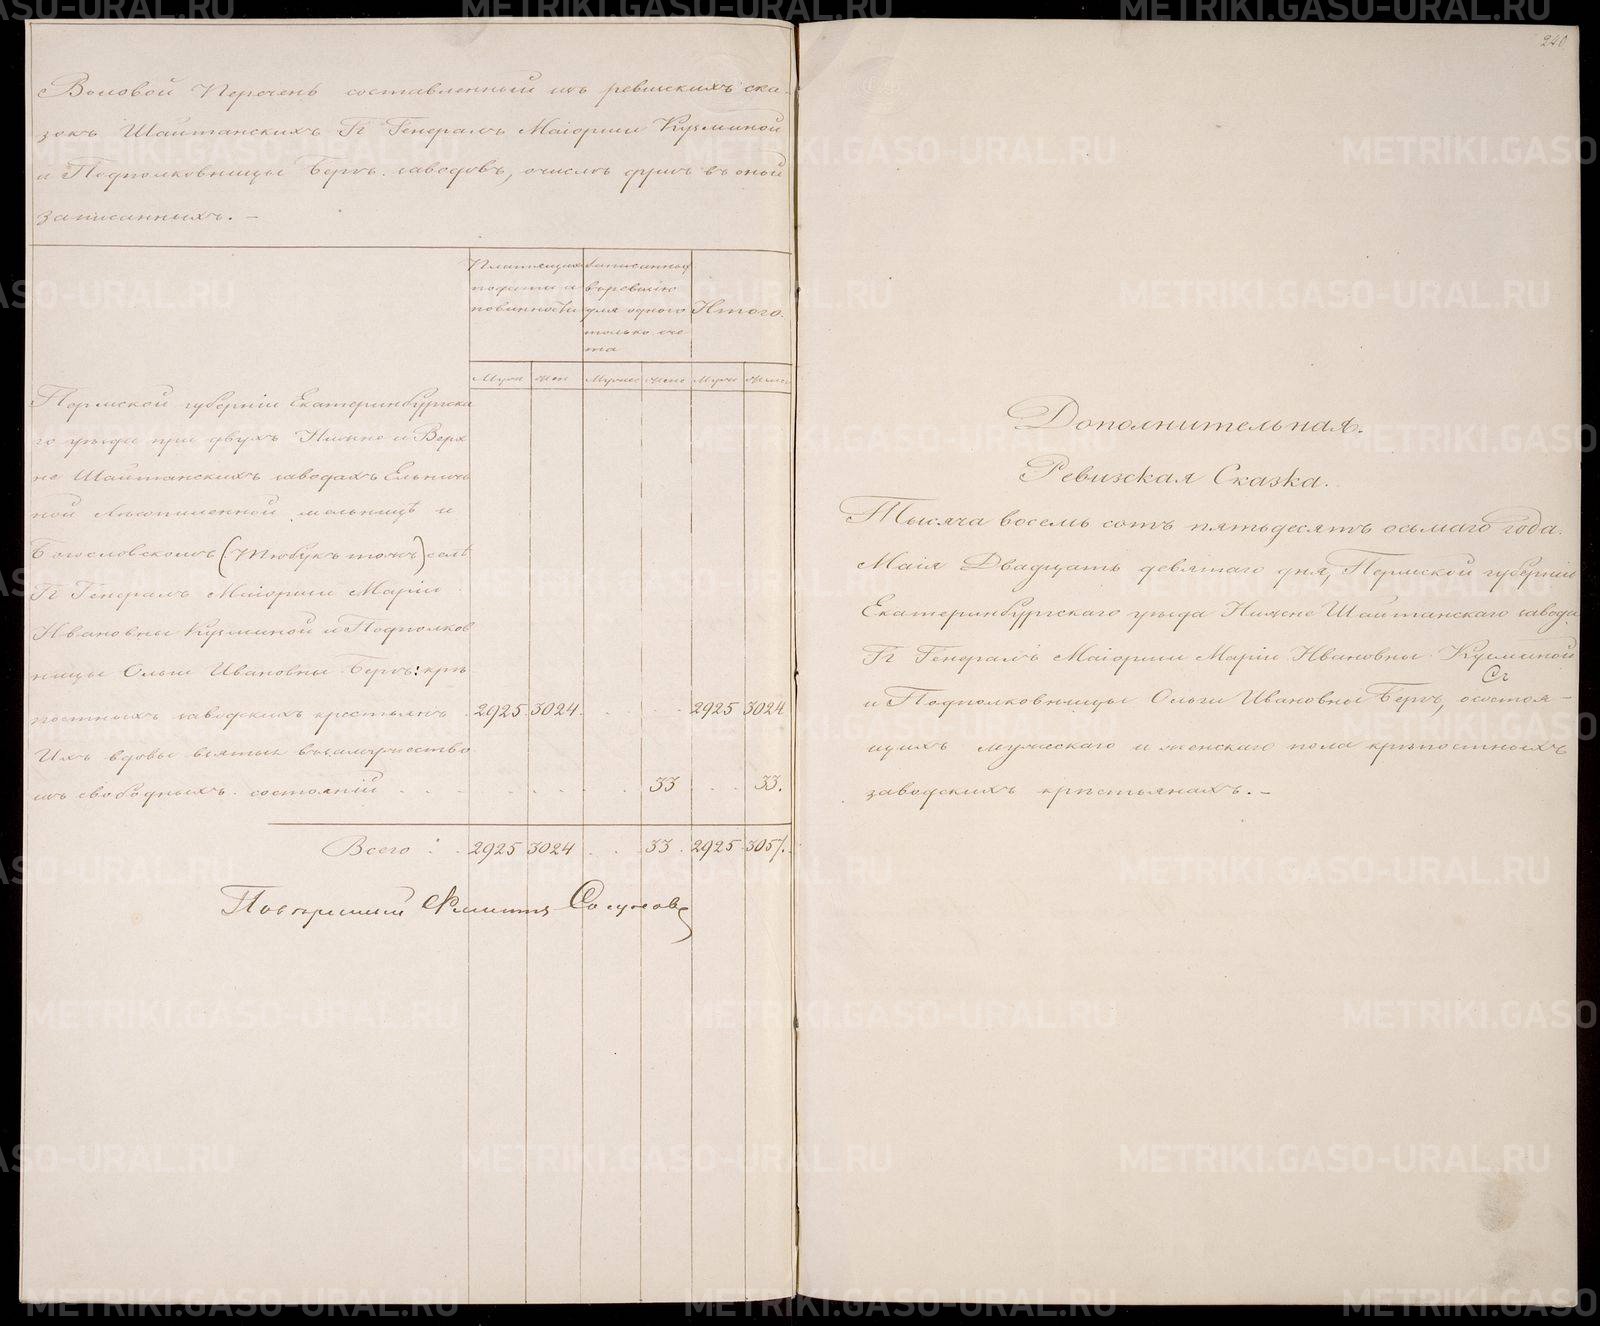 Валовой Перечень составленный изъ ревизскихъ ска-
зокъ Шайтанскихъ Гг Генералъ Маіорши Кузминой
и Подполковницы Бергъ заводовъ, о числѣ душъ въ оный
записанныхъ. —
Платящихъ подати и повинности
Записанныхъ въ ревизію для одного только сче та
Итого.
Муж Жен Мужес Женс Мужс Женс
Пермской губерніи Екатеринбургска
го уѣзда при двухъ Нижне и Верх
не Шайтанскихъ заводахъ Ельнич
ной лѣсопиленной мельницѣ и
Богословскомъ (Тюбукъ тожъ) селѣ
Гг Генералъ Маіорши Маріи
Ивановны Кузминой и Подполков
ницы Ольги Ивановны Бергъ: крѣ
постныхъ заводскихъ крестьянъ . 2925 3024 . . 2925 3024
Ихъ вдовы взятыя въ замужество
изъ свободныхъ состояній . . . . . . 33 . . 33.
Всего : . 2925 3024 . . 33 . 2925 3057.
Повѣренный Солуновъ
240
Дополнительная.
Ревизская Сказка.
Тысяча восемь сотъ пятьдесятъ осьмаго года.
Маія Двадцать девятаго дня, Пермской губерніи
Екатеринбургскаго уѣзда Нижне Шайтанскаго завода
Гг Генералъ Маіорши Маріи Ивановны Кузминой
и Подполковницы Ольги Ивановны Бергъ, о состоя-
щихъ мужескаго и женскаго пола крѣпостныхъ
заводскихъ крестьянахъ. —
METRIKI.GASO-URAL.RU